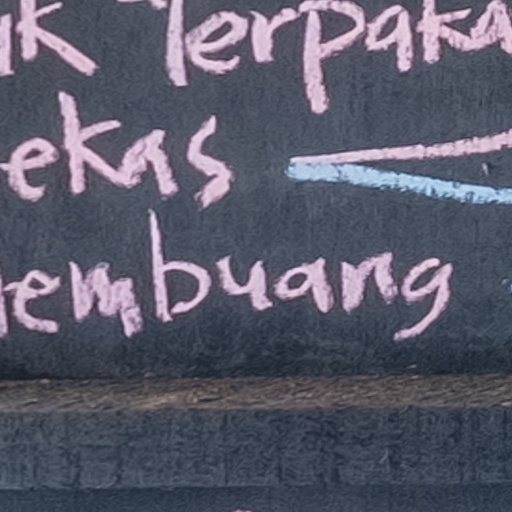 uk Terpaka
ekas
embuang